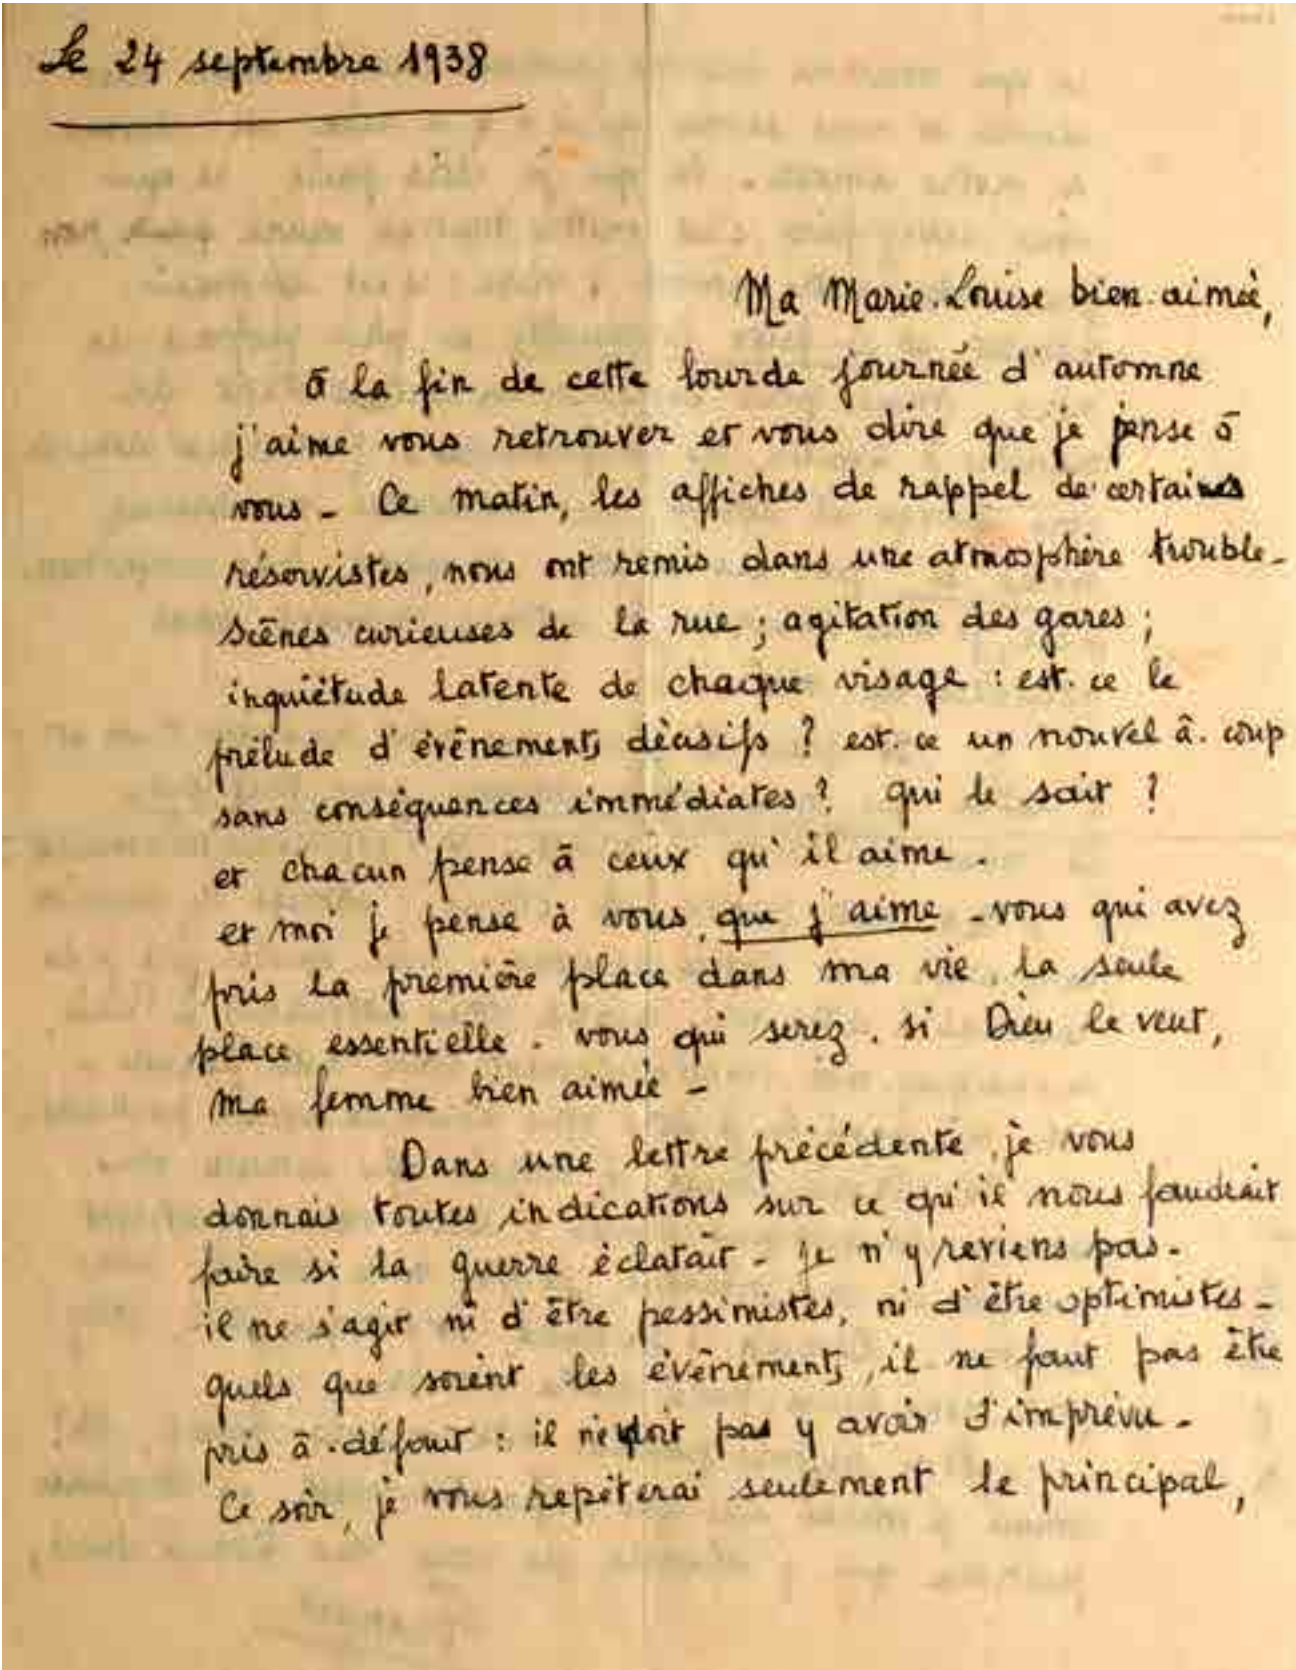 Le 24 septembre 1938
Ma Marie-Louise bien-aimée,
à la fin de cette lourde journée d'automne
j'aime vous retrouver et vous dire que je pense à
vous - Ce matin, les affiches de rappel de certaines
réservistes, nous ont remis dans une atmosphère trouble -
scènes curieuses de la rue ; agitation des gares ;
inquiétude latente de chaque visage : est-ce le
prélude d'évènements décisifs ? est-ce un nouvel à-coup
sans conséquences immédiates ? qui le sait ?
et chacun pense à ceux qu'il aime.
et moi je pense à vous, que j'aime - vous qui avez
pris la première place dans ma vie, la seule
place essentielle - vous qui serez, si Dieu le veut,
ma femme bien aimée -
Dans une lettre précédente, je vous
donnais toutes indications sur ce qu'il nous faudrait
faire si la guerre éclatait - je n'y reviens pas.
il ne s'agit ni d'être pessimistes, ni d'être optimistes -
quels que soient les évènements, il ne faut pas être
pris à-défaut : il ne doit pas y avoir d'imprévu -
Ce soir, je vous repèterai seulement le principal,